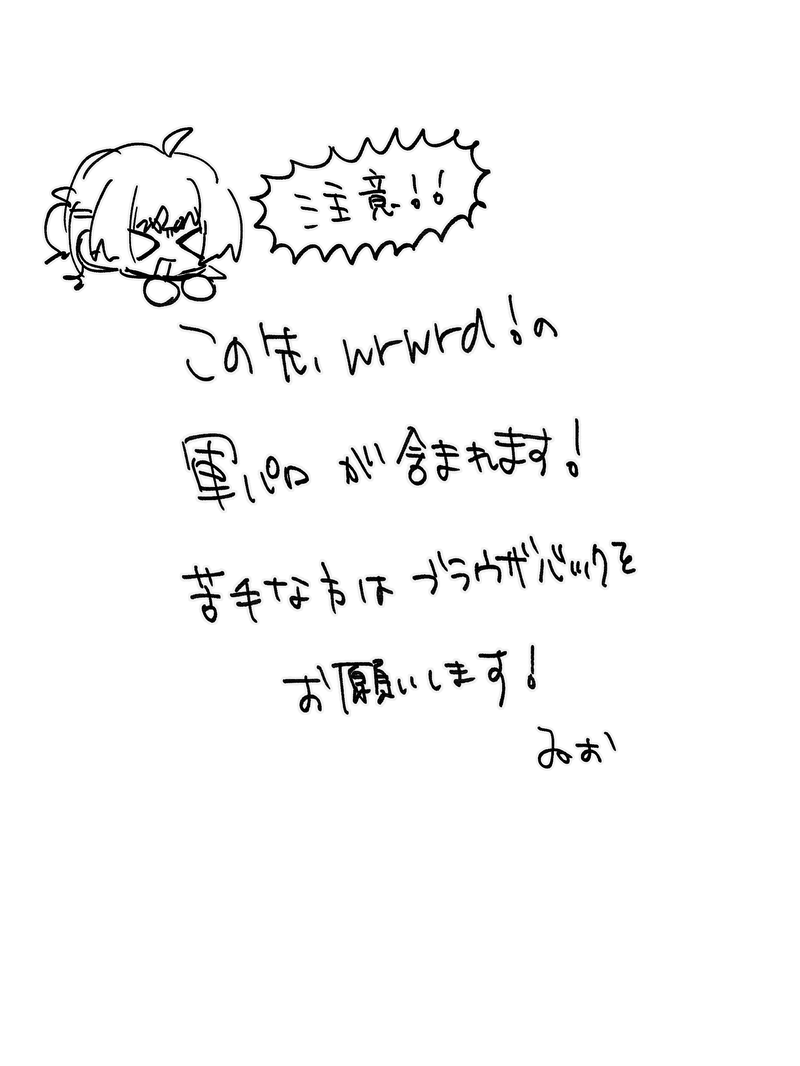 注意!!
この先、wrwrd!の
軍パロが含まれます!
苦手な方はブラウザバックを
お願いします!
みお